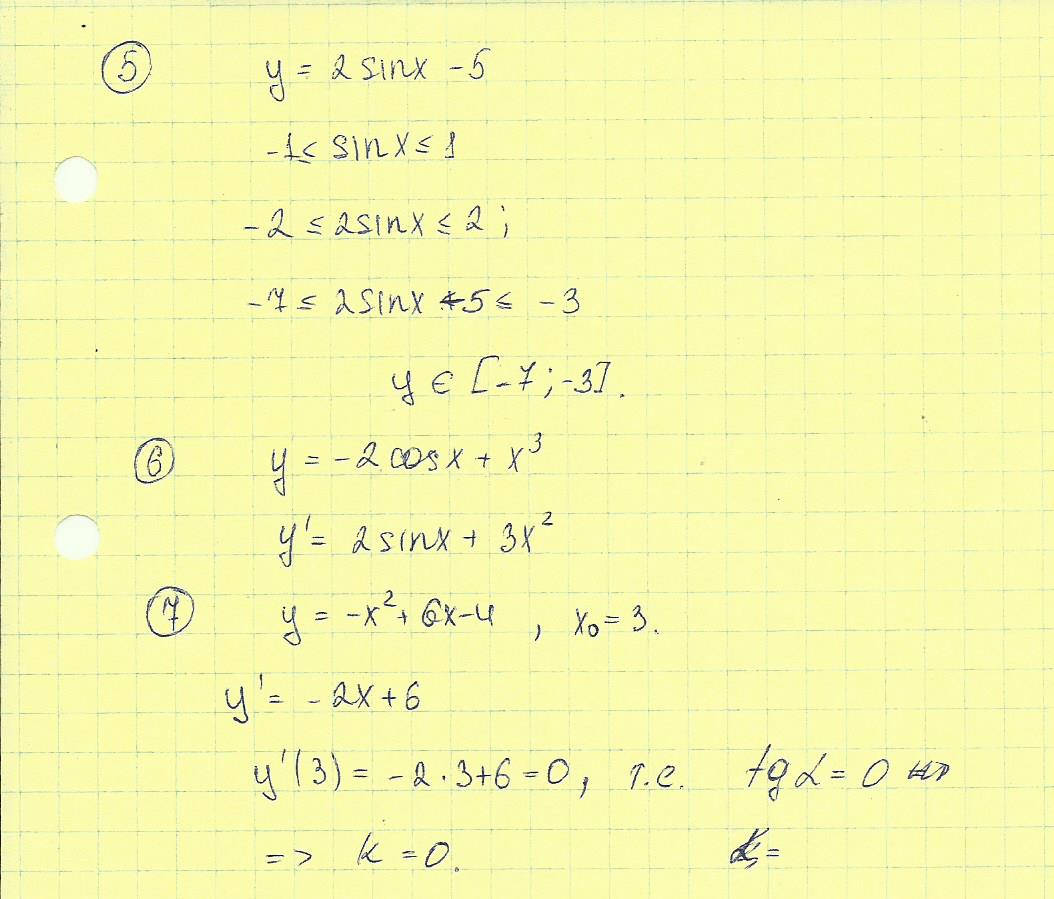 ⑤ y = 2 sinx - 5
-1 ≤ sinx ≤ 1
-2 ≤ 2sinx ≤ 2 ;
-7 ≤ 2sinx - 5 ≤ -3
y ∈ [-7 ; -3].
⑥ y = -2 cosx + x³
y' = 2 sinx + 3x²
⑦ y = -x² + 6x - 4 , x₀ = 3.
y' = -2x + 6
y'(3) = -2 · 3 + 6 = 0, т.е. tg α = 0
=> k = 0.